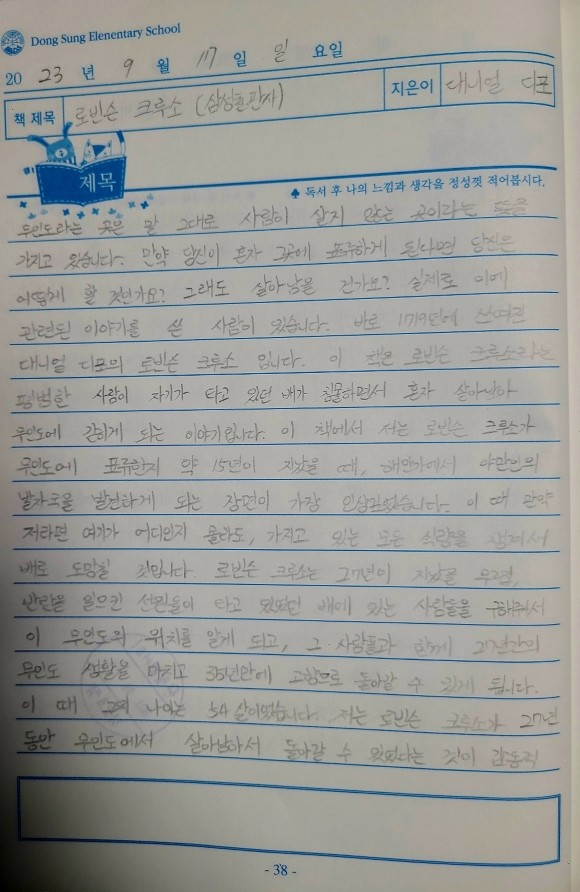 Dong Sung Elenentary School
20 23 년 9 월 17 일 일 요일
책 제목 로빈슨 크루소 (삼성출판사) 지은이 대니얼 디포
제목
♣ 독서 후 나의 느낌과 생각을 정성껏 적어봅시다.
무인도라는 곳은 말 그대로 사람이 살지 않는 곳이라는 뜻을
가지고 있습니다. 만약 당신이 혼자 그곳에 표류하게 된다면 당신은
어떻게 할 것인가요? 그래도 살아남을 건가요? 실제로 이에
관련된 이야기를 쓴 사람이 있습니다. 바로 1719년에 쓰여진
대니얼 디포의 로빈슨 크루소 입니다. 이 책은 로빈슨 크루소라는
평범한 사람이 자기가 타고 있던 배가 침몰하면서 혼자 살아남아
무인도에 갇히게 되는 이야기입니다. 이 책에서 저는 로빈슨 크루소가
무인도에 표류한지 약 15년이 지났을 때, 해안가에서 야만인의
발자국을 발견하게 되는 장면이 가장 인상깊었습니다. 이 때 만약
저라면 여기가 어디인지 몰라도, 가지고 있는 모든 식량을 챙겨서
배로 도망칠 것입니다. 로빈슨 크루소는 27년이 지났을 무렵,
반란을 일으킨 선원들이 타고 있었던 배에 있는 사람들을 구해줘서
이 무인도의 위치를 알게 되고, 그 사람들과 함께 27년간의
무인도 생활을 마치고 35년만에 고향으로 돌아갈 수 있게 됩니다.
이 때 그의 나이는 54살이었습니다. 저는 로빈슨 크루소가 27년
동안 무인도에서 살아남아서 돌아갈 수 있었다는 것이 감동적
- 38 -